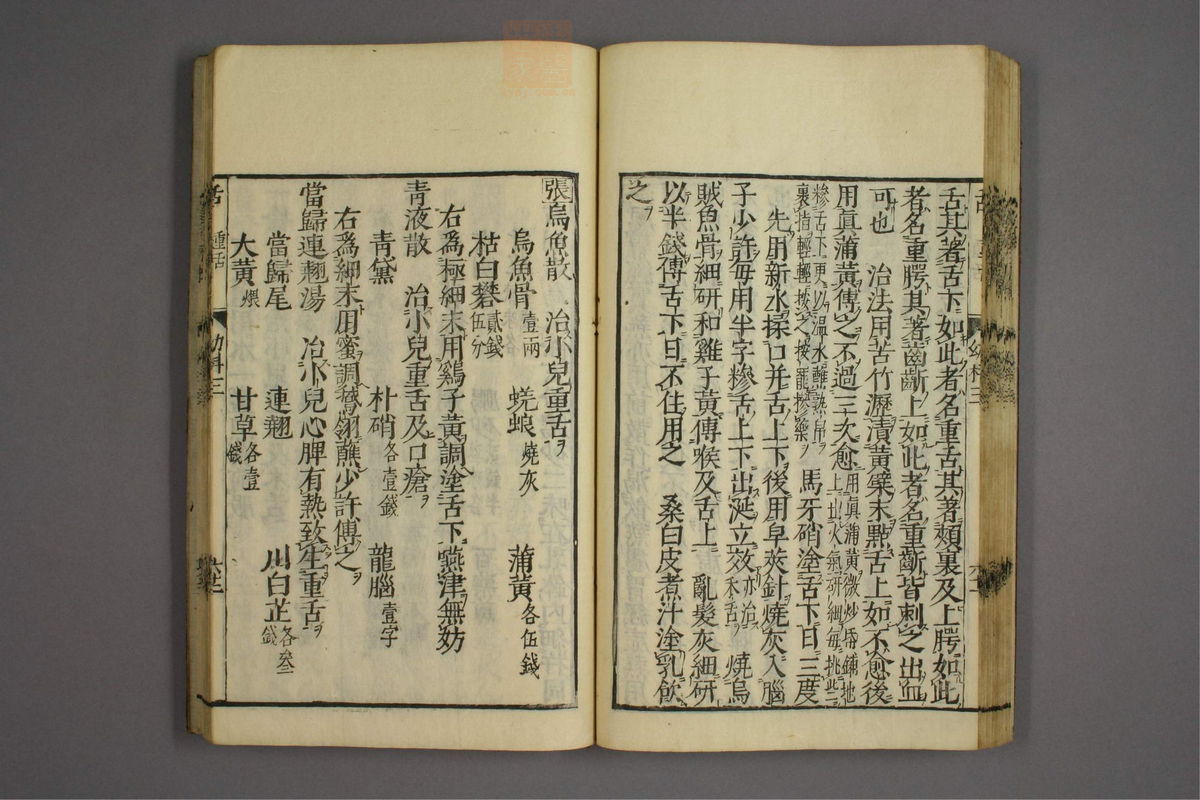 舌其著舌下如此者名重舌其著頰裏及上腭如此
者名重腭其著齒齗上如此者名重齗皆刺之出血
可也　治法用苦竹瀝漬黃蘗末點舌上如不愈後
用眞蒲黃傅之不過三次愈用眞蒲黃微炒
摻舌下更以溫水蘸熟帛裹指輕輕按之按罷摻藥　馬牙硝塗舌下日三度
先用新水探口并舌上下後用皁莢針燒灰入腦
子少許每用半字摻舌上下出涎立效亦治木舌　燒烏
賊魚骨細研和雞子黃傅喉及舌上　亂髮灰細研
以半錢傅舌下日不住用之　桑白皮煮汁塗乳飲
之
張烏魚散　治小兒重舌
烏魚骨壹兩　蜣蜋燒灰　蒲黃各伍錢
枯白礬貳錢伍分
右爲極細末用鷄子黃調塗舌下嚥津無妨
青液散　治小兒重舌及口瘡
青黛　朴硝各壹錢　龍腦壹字
右爲細末用蜜調鵝翎蘸少許傅之
當歸連翹湯　治小兒心脾有熱致生重舌
當歸尾　連翹　川白芷各叁錢
大黃煨　甘草各壹錢
重舌　幼科三